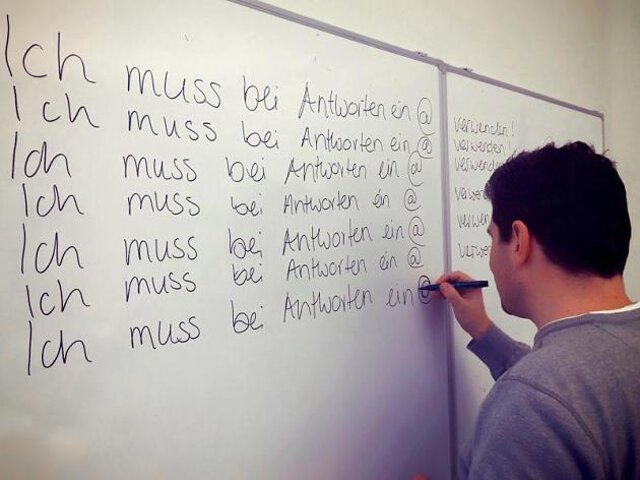 Ich muss bei Antworten ein @ verwenden!
Ich muss bei Antworten ein @ verwenden!
Ich muss bei Antworten ein @ verwenden
Ich muss bei Antworten ein @
Ich muss bei Antworten ein @
Ich muss bei Antworten ein @
Ich muss bei Antworten ein @